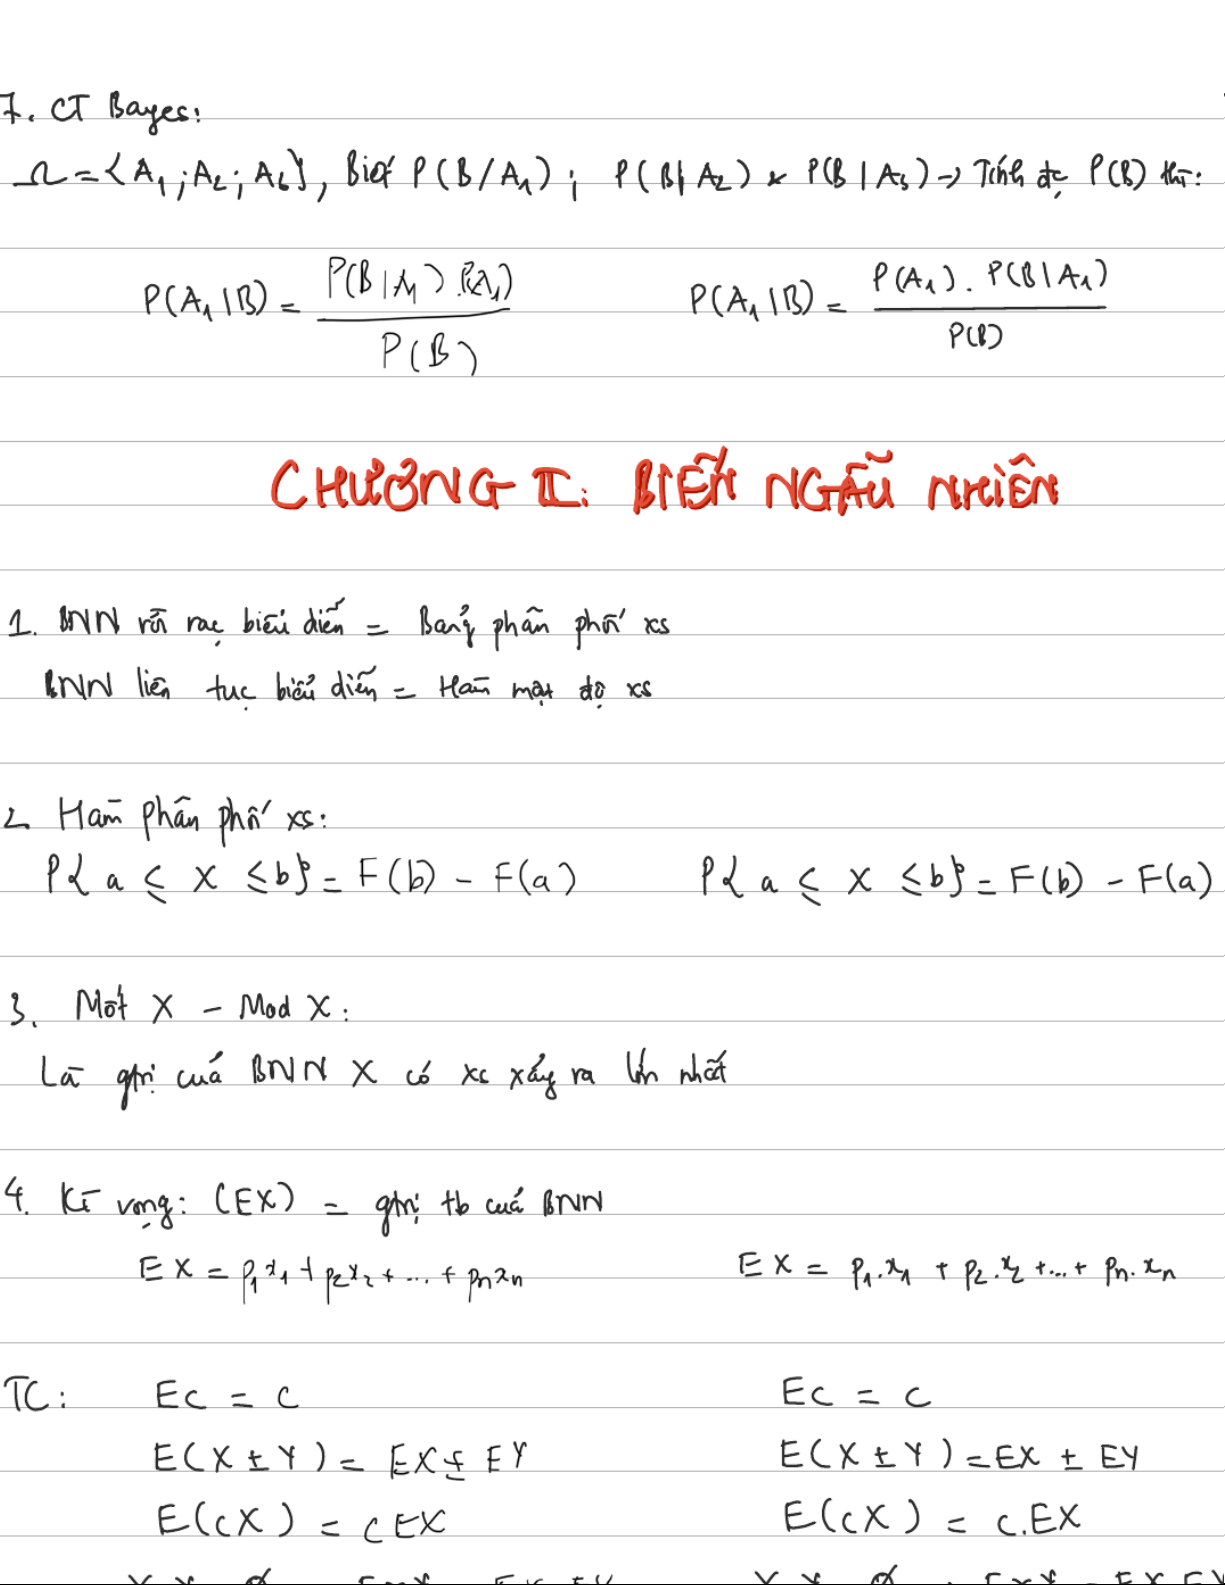 7. CT Bayes:
Ω = {A₁; A₂; A₃}, Biết P(B/A₁); P(B|A₂) & P(B|A₃) → Tính đc P(B) thì:
P(A₁|B) = P(B|A₁).P(A₁) / P(B)    P(A₁|B) = P(A₁).P(B|A₁) / P(B)
CHƯƠNG II: BIẾN NGẪU NHIÊN
1. BNN rời rạc biểu diễn = Bảng phân phối xs
BNN liên tục biểu diễn = Hàm mật độ xs
2 Hàm phân phối xs:
P{a ≤ X ≤ b} = F(b) - F(a)    P{a ≤ X ≤ b} = F(b) - F(a)
3. Mốt X - Mod X:
Là gtrị cuả BNN X có xs xảy ra lớn nhất
4. Kì vọng: (EX) = gtrị tb cuả BNN
EX = p₁x₁ + p₂x₂ + ... + pₙxₙ    EX = p₁.x₁ + p₂.x₂ + ... + pₙ.xₙ
TC: Ec = c    Ec = c
E(X ± Y) = EX ± EY    E(X ± Y) = EX ± EY
E(cX) = cEX    E(cX) = c.EX